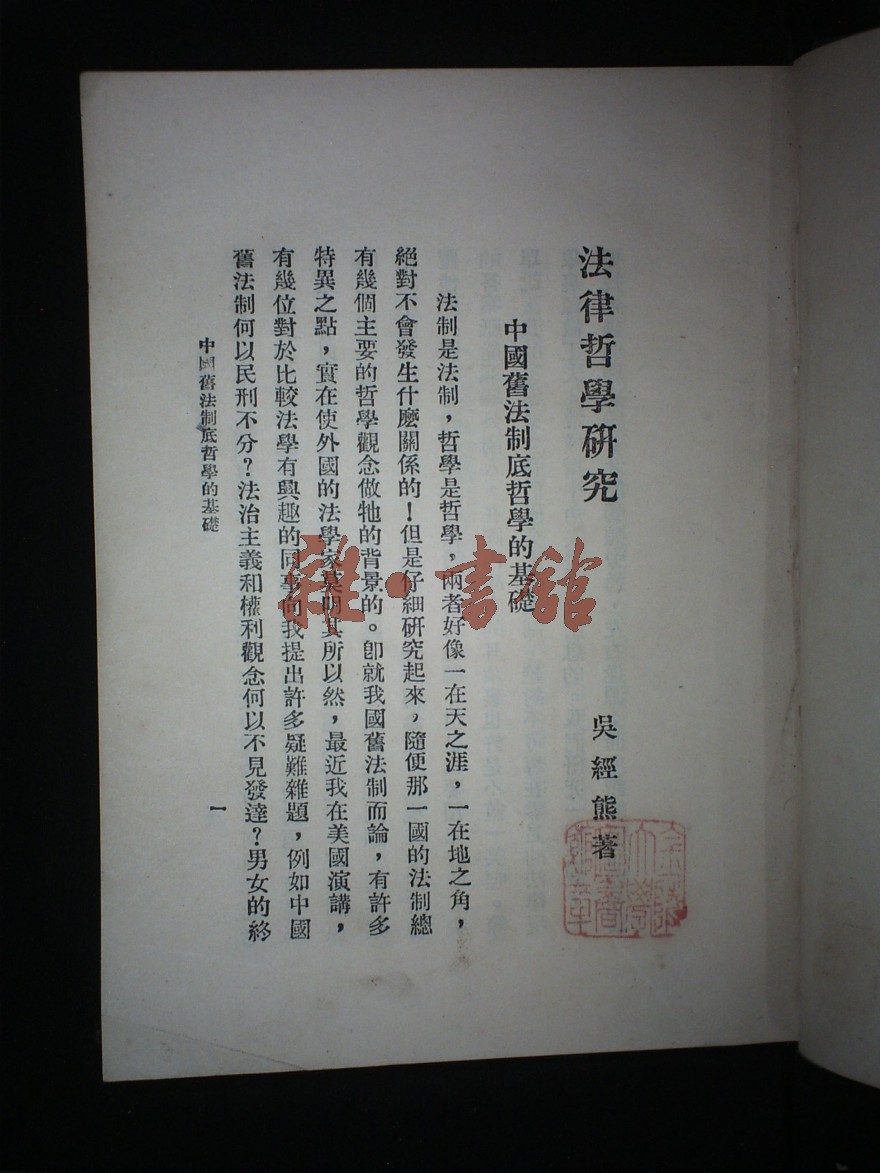 法律哲學研究
吳經熊著
中國舊法制底哲學的基礎
法制是法制，哲學是哲學，兩者好像一在天之涯，一在地之角，
絕對不會發生什麼關係的！但是仔細研究起來，隨便那一國的法制總
有幾個主要的哲學觀念做牠的背景的。卽就我國舊法制而論，有許多
特異之點，實在使外國的法學家莫明其所以然，最近我在美國演講，
有幾位對於比較法學有興趣的同事向我提出許多疑難雜題，例如中國
舊法制何以民刑不分？法治主義和權利觀念何以不見發達？男女的終
中國舊法制底哲學的基礎
一
雜·書館